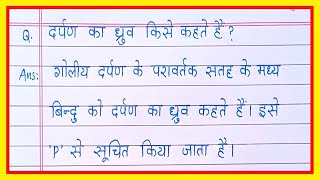 Q. दर्पण का ध्रुव किसे कहते हैं ?
Ans: गोलीय दर्पण के परावर्तक सतह के मध्य
बिन्दु को दर्पण का ध्रुव कहते हैं। इसे
'P' से सूचित किया जाता है।